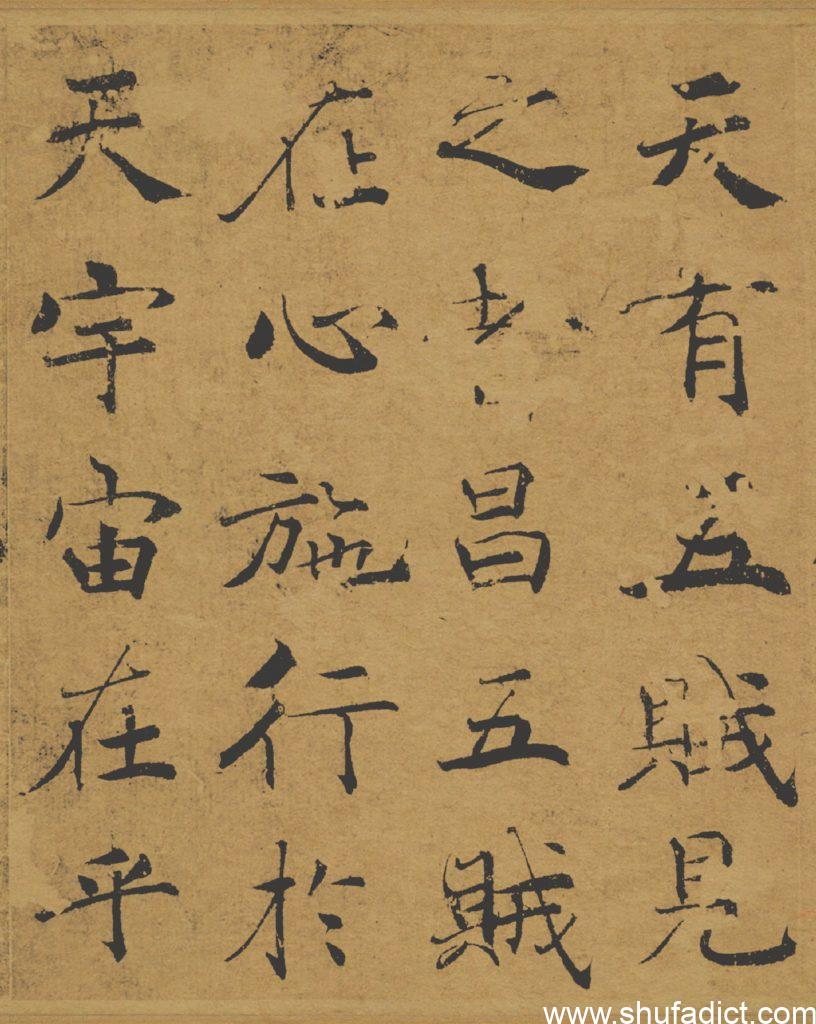 天有五賊見
之者昌五賊
在心施行於
天宇宙在乎
www.shufadict.com